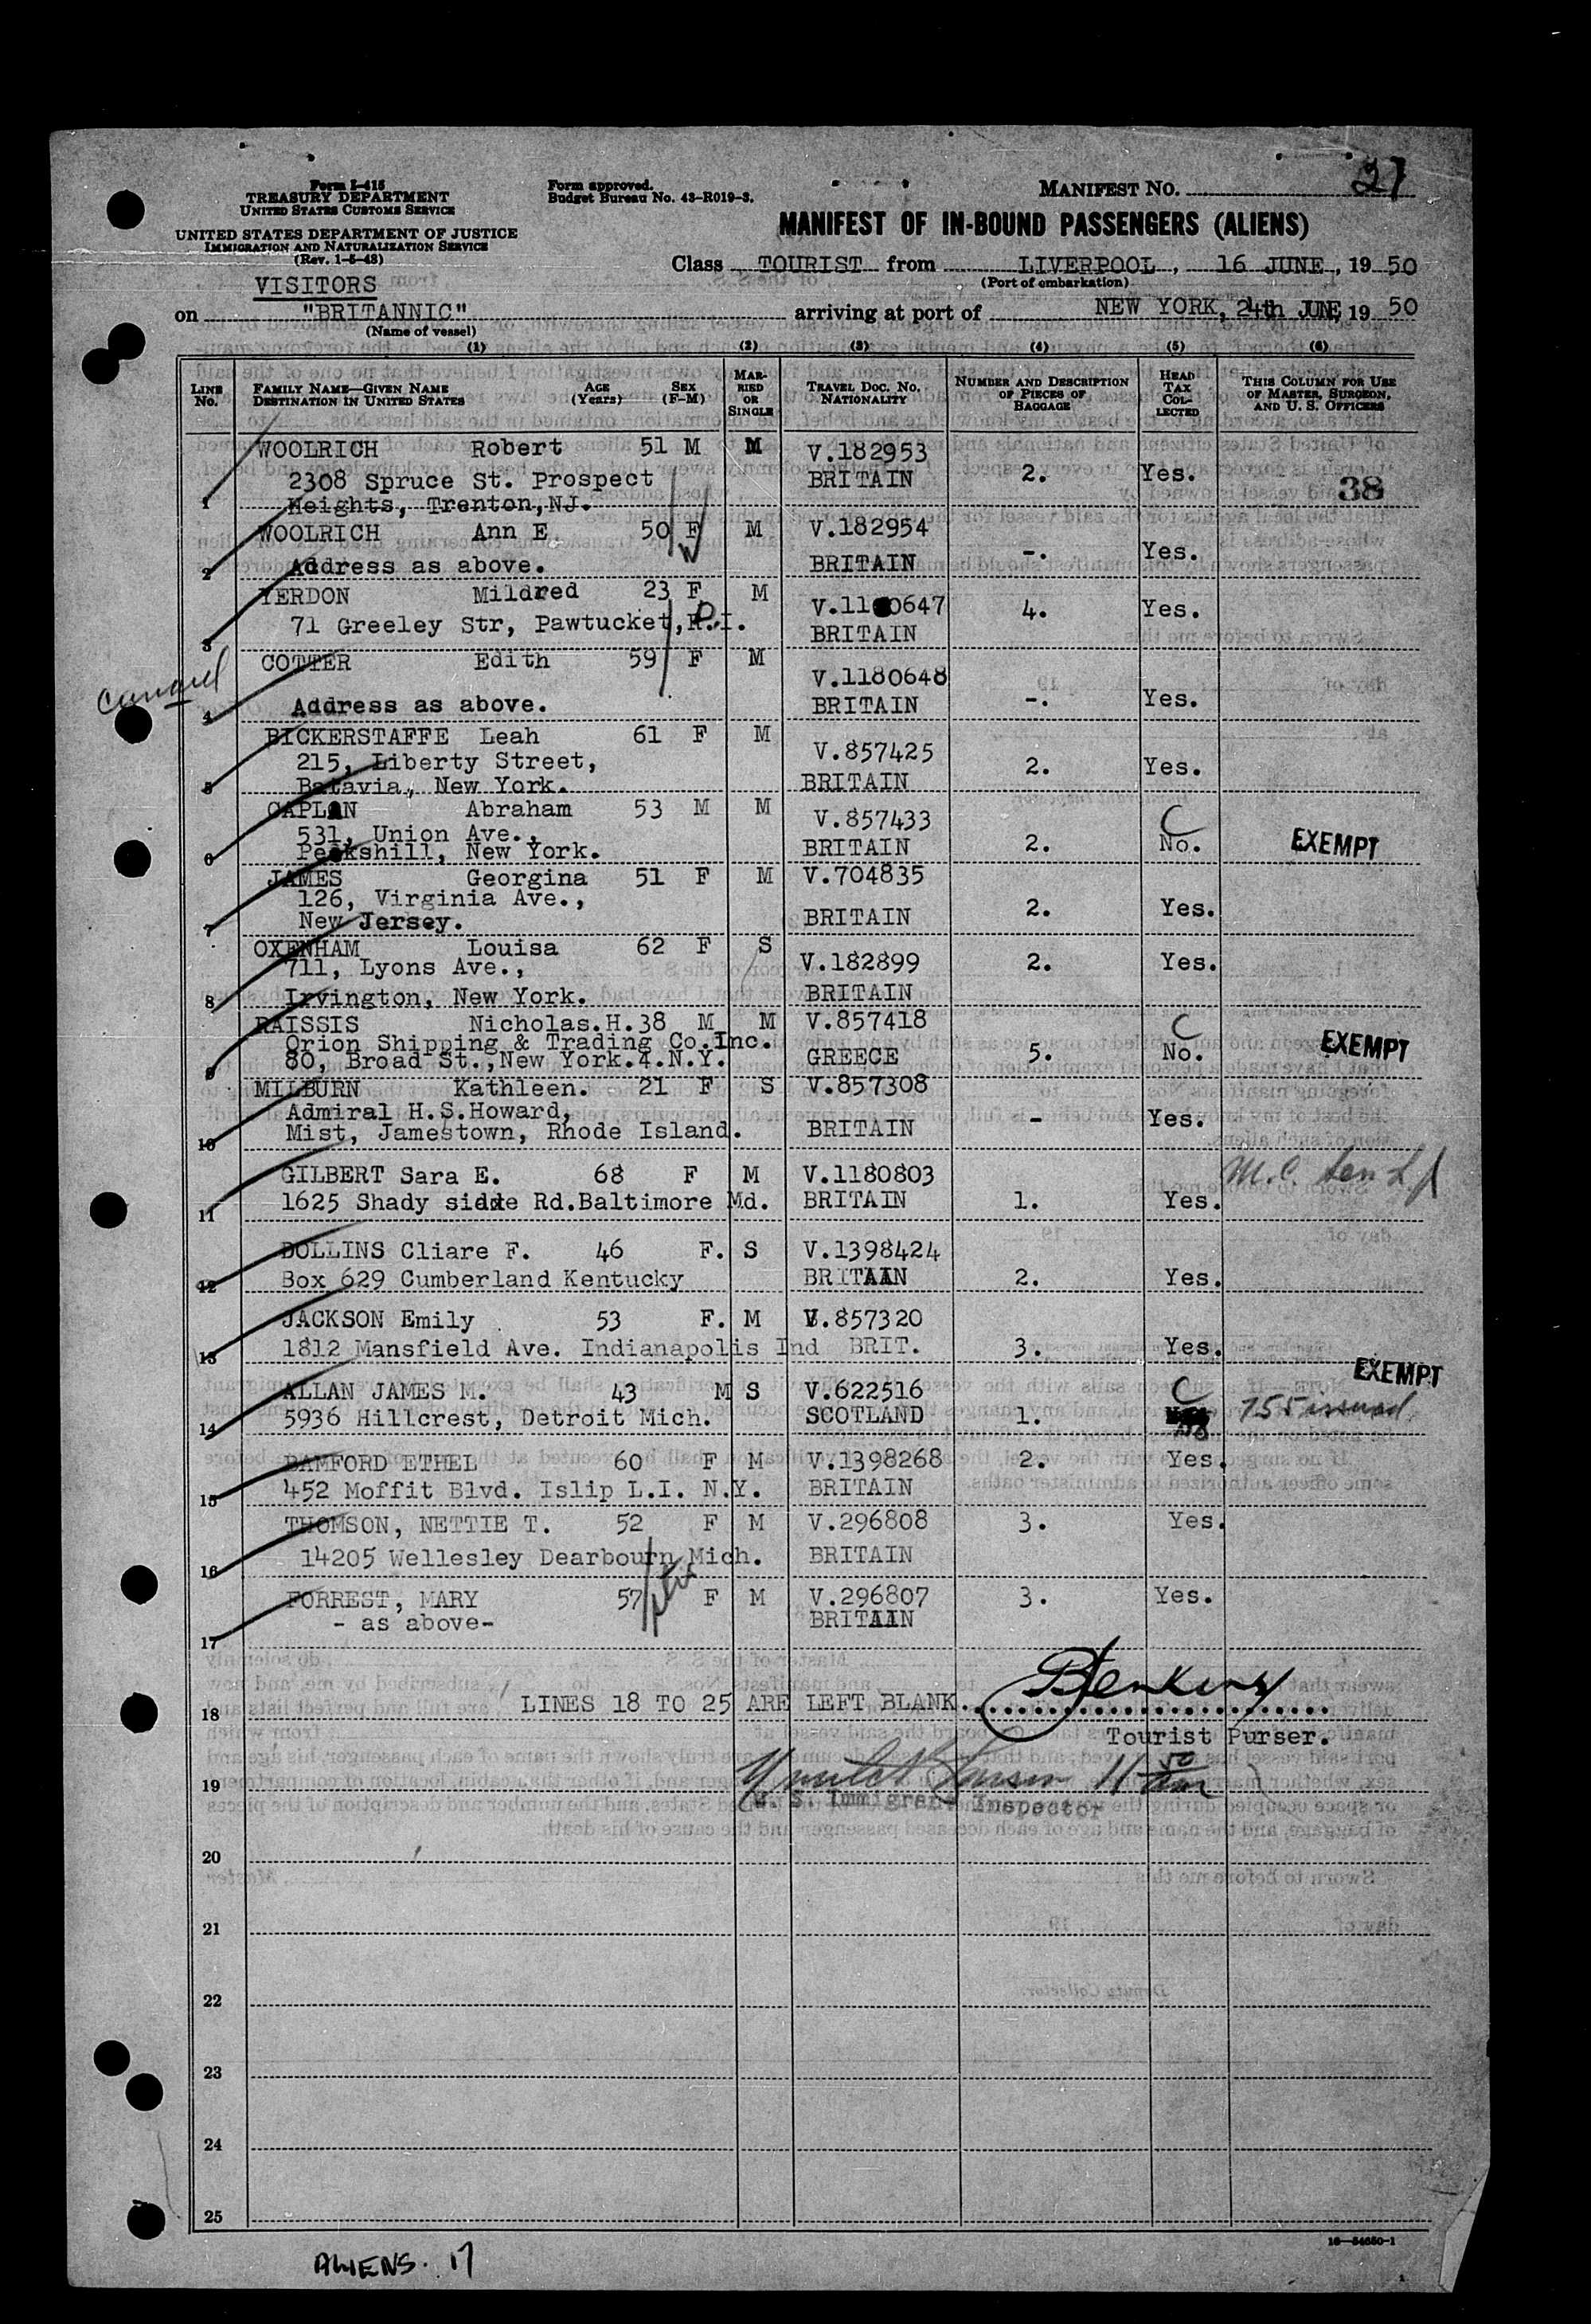 Form I-415
TREASURY DEPARTMENT
UNITED STATES CUSTOMS SERVICE
UNITED STATES DEPARTMENT OF JUSTICE
IMMIGRATION AND NATURALIZATION SERVICE
(Rev. 1-5-48)
Form approved.
Budget Bureau No. 43-R019-3.
MANIFEST NO. 37
MANIFEST OF IN-BOUND PASSENGERS (ALIENS)
Class TOURIST from LIVERPOOL, 16 JUNE, 19 50
(Port of embarkation)
VISITORS
on "BRITANNIC" arriving at port of NEW YORK, 24th JUNE, 19 50
(Name of vessel)
(1) (2) (3) (4) (5) (6)
LINE No. FAMILY NAME—GIVEN NAME DESTINATION IN UNITED STATES AGE (Years) SEX (F-M) MARRIED OR SINGLE TRAVEL DOC. NO. NATIONALITY NUMBER AND DESCRIPTION OF PIECES OF BAGGAGE HEAD TAX COLLECTED THIS COLUMN FOR USE OF MASTER, SURGEON, AND U. S. OFFICERS
WOOLRICH Robert 51 M M V.182953
2308 Spruce St. Prospect BRITAIN 2. Yes. 38
1 Heights, Trenton,NJ.
WOOLRICH Ann E 50 F M V.182954
2 Address as above. BRITAIN -. Yes.
YERDON Mildred 23 F M V.1180647 4. Yes.
3 71 Greeley Str, Pawtucket,R.I. BRITAIN
COTTER Edith 59 F M V.1180648
Cunard
4 Address as above. BRITAIN -. Yes.
BICKERSTAFFE Leah 61 F M V.857425
215, Liberty Street, 2. Yes.
5 Batavia, New York. BRITAIN
CAPLAN Abraham 53 M M V.857433 C
531, Union Ave., No. EXEMPT
6 Peekshill, New York. BRITAIN 2.
JAMES Georgina 51 F M V.704835
126, Virginia Ave., 2. Yes.
7 New Jersey. BRITAIN
OXENHAM Louisa 62 F S V.182899 2. Yes.
711, Lyons Ave.,
8 Irvington, New York. BRITAIN
RAISSIS Nicholas.H. 38 M M V.857418 C
Orion Shipping & Trading Co.Inc. No. EXEMPT
9 80, Broad St.,New York.4.N.Y. GREECE 5.
MILBURN Kathleen. 21 F S V.857308
Admiral H.S.Howard, - Yes.
10 Mist, Jamestown, Rhode Island. BRITAIN
GILBERT Sara E. 68 F M V.1180803 M.C.
11 1625 Shady sidde Rd.Baltimore Md. BRITAIN 1. Yes.
DOLLINS Cliare F. 46 F. S V.1398424
12 Box 629 Cumberland Kentucky BRITAIN 2. Yes.
JACKSON Emily 53 F. M V.857320
13 1812 Mansfield Ave. Indianapolis Ind BRIT. 3. Yes.
EXEMPT
ALLAN JAMES M. 43 M S V.622516 C 755 issued
14 5936 Hillcrest, Detroit Mich. SCOTLAND 1. No
BAMFORD ETHEL 60 F M V.1398268 2. Yes.
15 452 Moffit Blvd. Islip L.I. N.Y. BRITAIN
THOMSON, NETTIE T. 52 F M V.296808 3. Yes.
16 14205 Wellesley Dearbourn Mich. BRITAIN
FORREST, MARY 57 F M V.296807 3. Yes.
- as above- BRITAIN
17
18 LINES 18 TO 25 ARE LEFT BLANK. BJenkins
Tourist Purser.
19 11 50 am
U. S. Immigrant Inspector
20
21
22
23
24
25
16—54650-1
ALIENS. 17